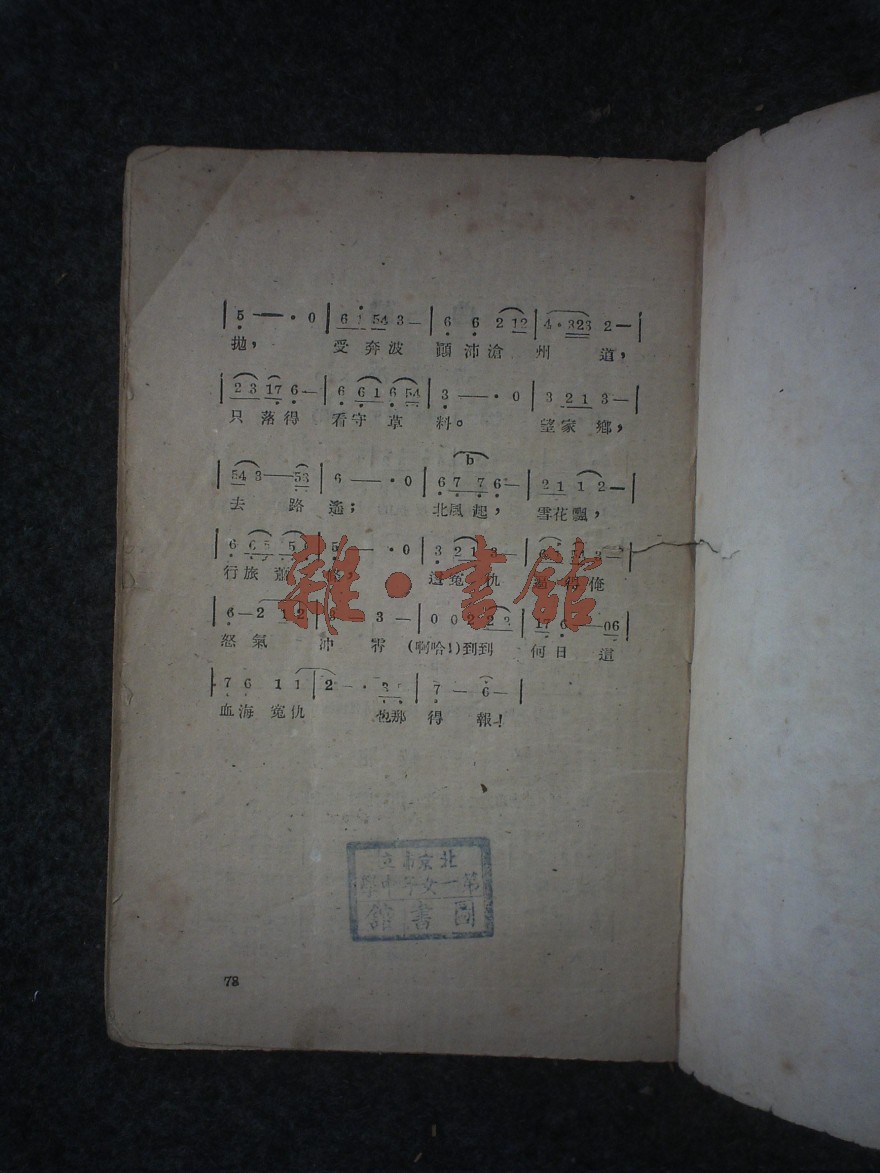 5 — · 0 | 6 1 54 3 — | 6 6 2 12 | 4 · 323 2 — |
拋， 受奔波 顚沛滄 州 道，
2 3 17 6 — | 6 6 1 6 54 | 3 — · 0 | 3 2 1 3 — |
只落得 看守草 料。 望家鄉，
54 3 — 53 | 6 — · 0 | 6 7 7 6 — | 2 1 1 2 — |
b
去 路 遙； 北風起， 雪花飄，
— · 0 | 3 2 1 3 —
行旅 這寃仇 得俺
6 — 2 1 2 | 3 — | 0 0 2 2 3 | 17 6 — 06 |
怒氣 沖 霄 (啊哈！)到到 何日 這
7 6 1 1 | 2 — · | 7 — 6 — |
血海寃仇 也那 得 報！
雜·書館
北京市立
第一女子中學
圖書館
78